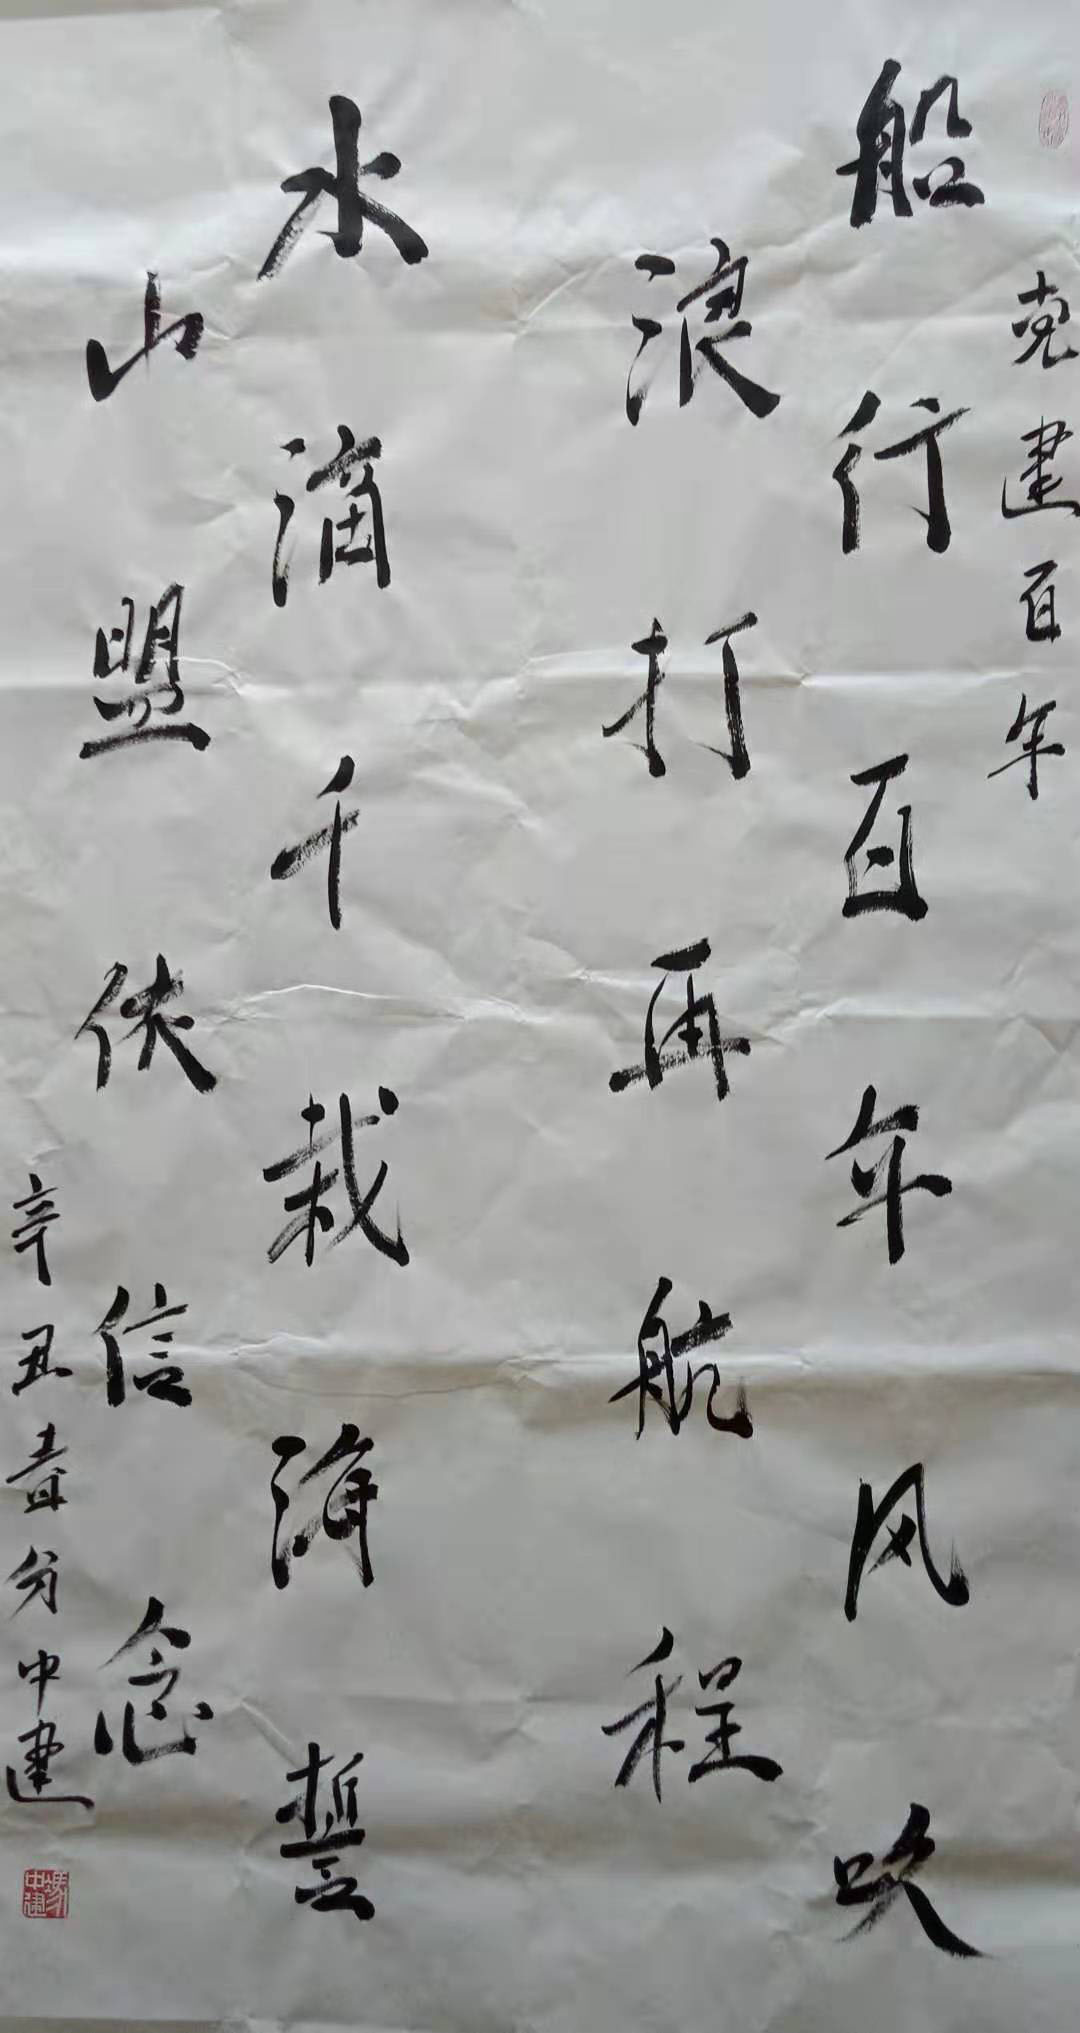 党建百年
船行百年风吹
浪打再航程
水滴千栽海誓
山盟依信念
辛丑春分中建